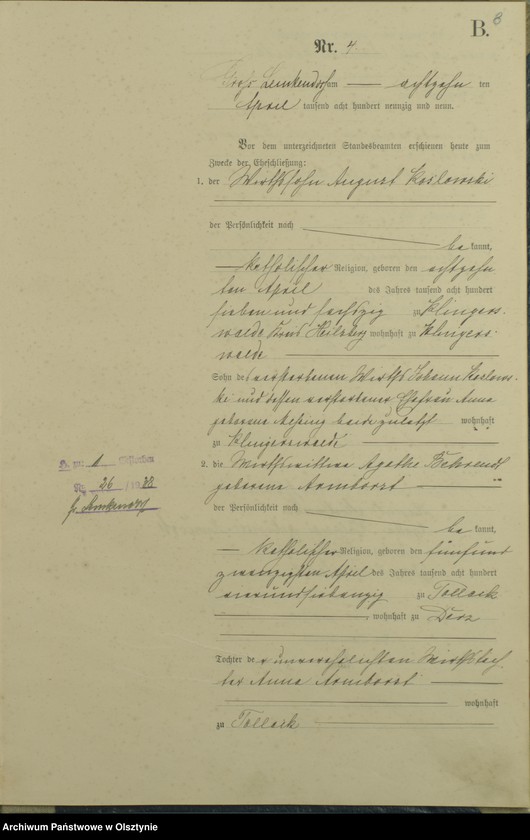 B. 8
Nr. 4.
Groß Lemkendorf am — achtzehn ten
April tausend acht hundert neunzig und neun.
Vor dem unterzeichneten Standesbeamten erschienen heute zum
Zwecke der Eheschließung:
1. der Wirthssohn August Koslowski
der Persönlichkeit nach
be kannt,
— katholischer Religion, geboren den achtzehn
ten April des Jahres tausend acht hundert
sieben und sechszig zu Klingers-
walde Kreis Heilsberg wohnhaft zu Klingers-
walde
Sohn des verstorbenen Wirths Johann Koslows-
ki und dessen verstorbener Ehefrau Anna
geborene beide zuletzt wohnhaft
zu Klingerswalde
2. die Wirthswittwe Agathe Behrendt
geborene Armborst
der Persönlichkeit nach
be kannt,
— katholischer Religion, geboren den fünfund
zwanzigsten April des Jahres tausend acht hundert
vierundsiebenzig zu Tollack
, wohnhaft zu Derz
Tochter der unverehelichten Wirthstoch-
ter Anna Armborst
wohnhaft
zu Tollack
H. zu 1
Nr. 26 / 1938
Archiwum Państwowe w Olsztynie